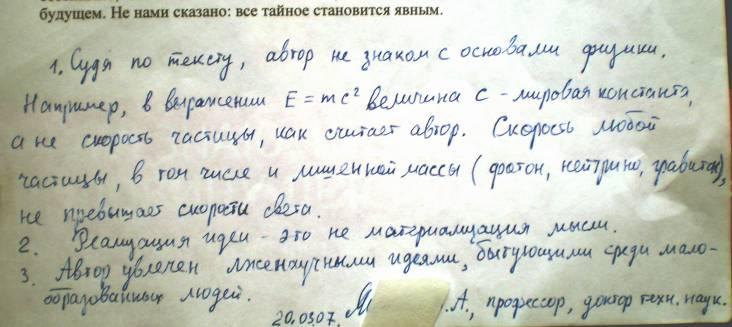 будущем. Не нами сказано: все тайное становится явным.
1. Судя по тексту, автор не знаком с основами физики.
Например, в выражении E = mc² величина c - мировая константа,
а не скорость частицы, как считает автор. Скорость любой
частицы, в том числе и лишенной массы (фотон, нейтрино, гравитон),
не превышает скорости света.
2. Реализация идеи - это не материализация мысли.
3. Автор увлечен лженаучными идеями, бытующими среди мало-
образованных людей.
20.03.07. М .А., профессор, доктор техн. наук.